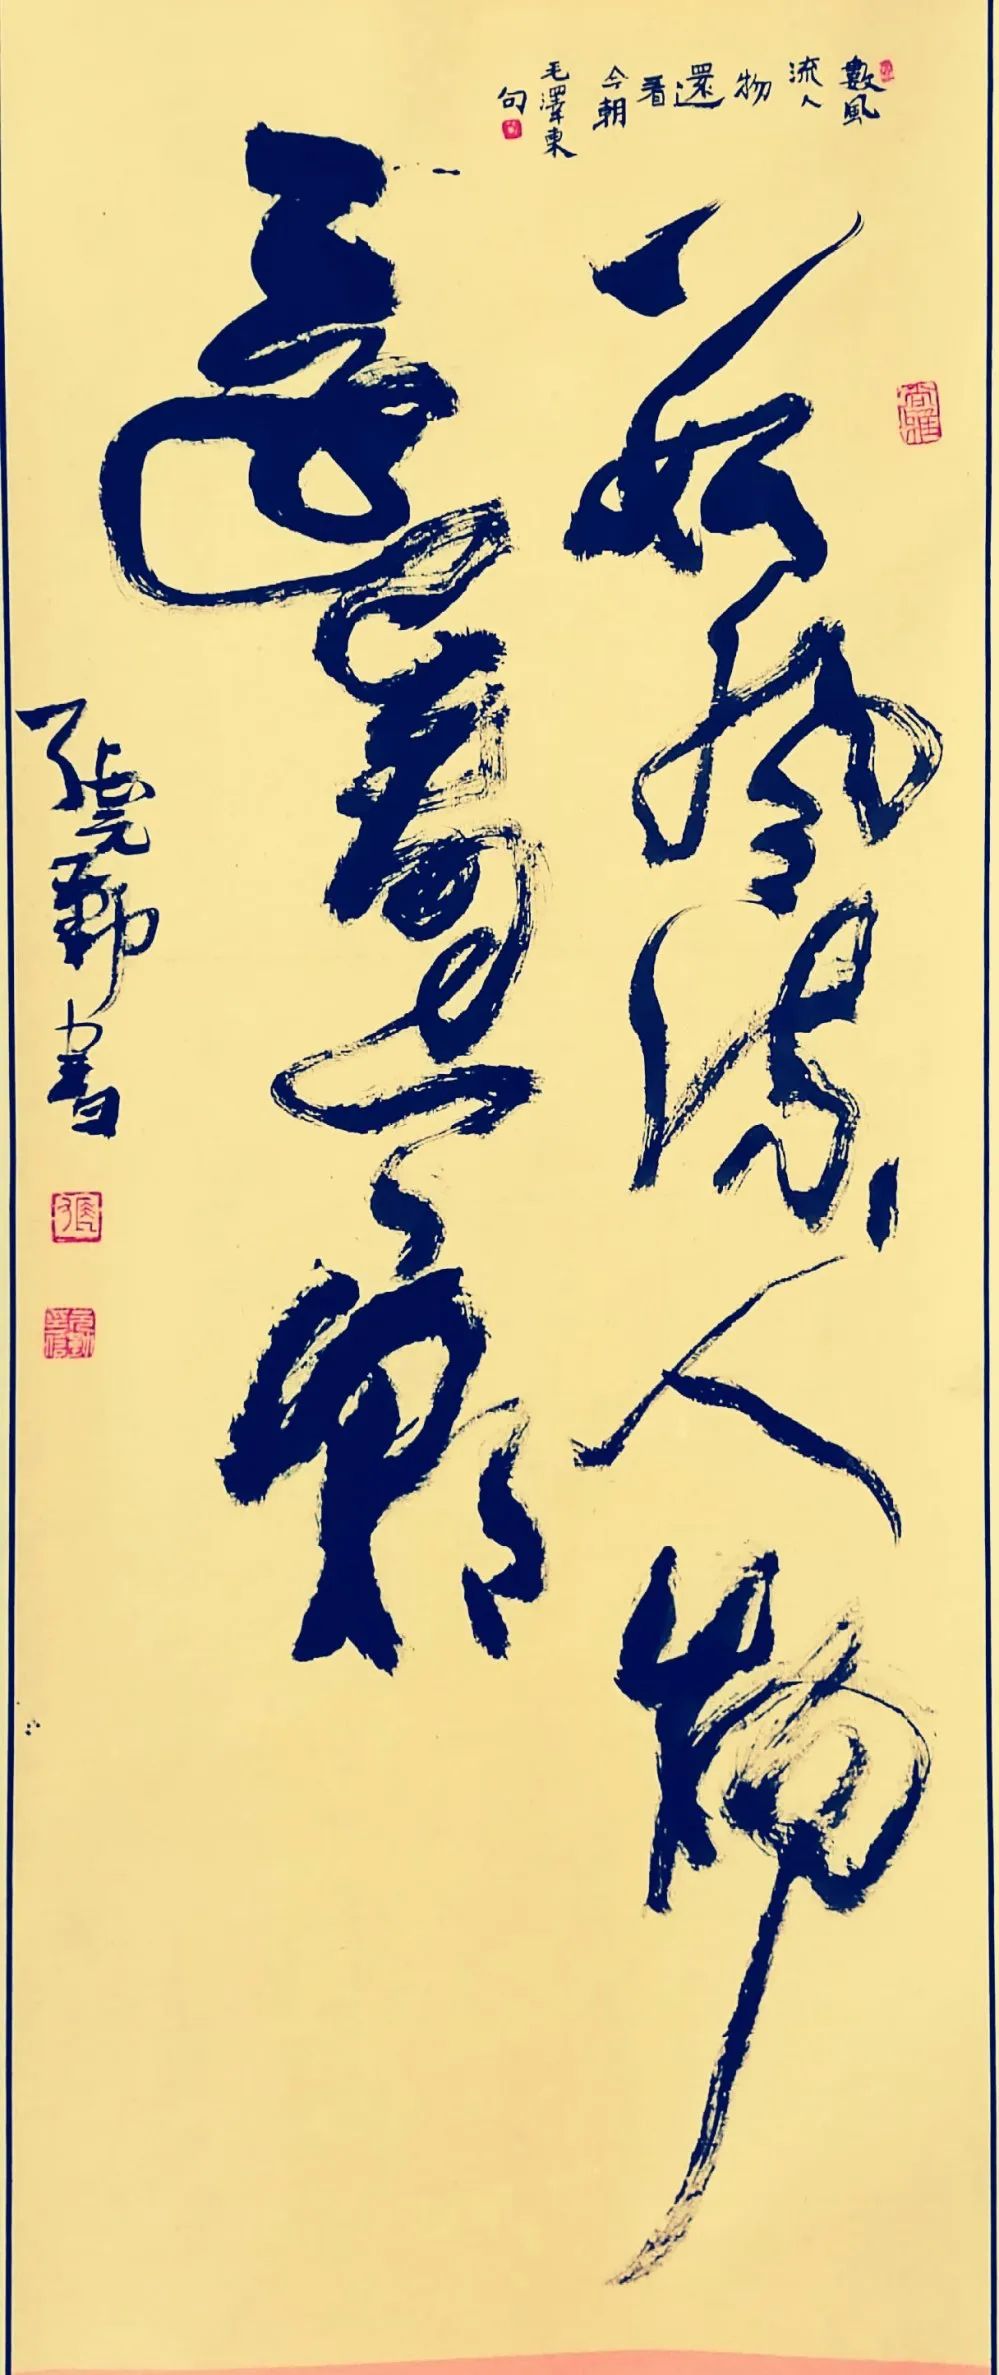 數風
流人
物
還
看
今朝
毛澤東
句
數風流人物
還看今朝
張元勤書
張